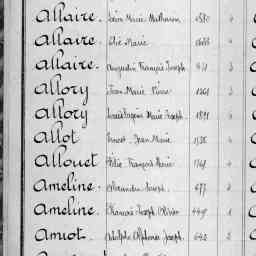 Allaire. Léon Marie Mathurin
Allaire. Elie Marie
Allaire. Augustin François Joseph 3
Allory Jean Marie Pierre 1261 2
Allory Louis Eugène Marie Joseph 1891
Allot Ernest Jean Marie 4
Allouet Elie François Marie 4
Ameline. Alexandre Joseph. 677 2
Ameline. François Joseph Olivier 449 1
Amiot. Adolphe Alphonse Joseph. 642 2